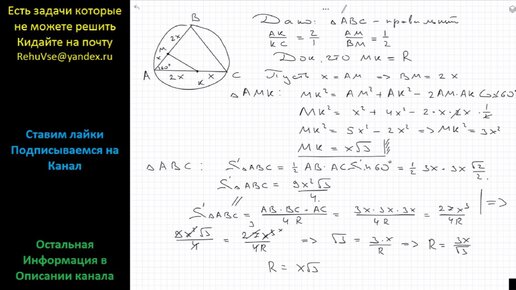 Есть задачи которые
не можете решить
Кидайте на почту
RehuVse@yandex.ru
Ставим лайки
Подписываемся на
Канал
Остальная
Информация в
Описании канала
B
2x
M
x
60°
A
2x
K
x
C
Дано: △ABC - правильн
AK/KC = 2/1 AM/BM = 1/2
Док, что MK = R
Пусть x = AM => BM = 2x
△AMK: MK² = AM² + AK² - 2AM·AK Cos60°
MK² = x² + 4x² - 2·x·2x·1/2
MK² = 5x² - 2x² => MK² = 3x²
MK = x√3
△ABC: S△ABC = 1/2 AB·AC Sin60° = 1/2 3x·3x √3/2
S△ABC = 9x²√3/4
S△ABC = AB·BC·AC/4R = 3x·3x·3x/4R = 27x³/4R | =>
9x²√3/4 = 27x³/4R => √3 = 3·x/R => R = 3x/√3
R = x√3